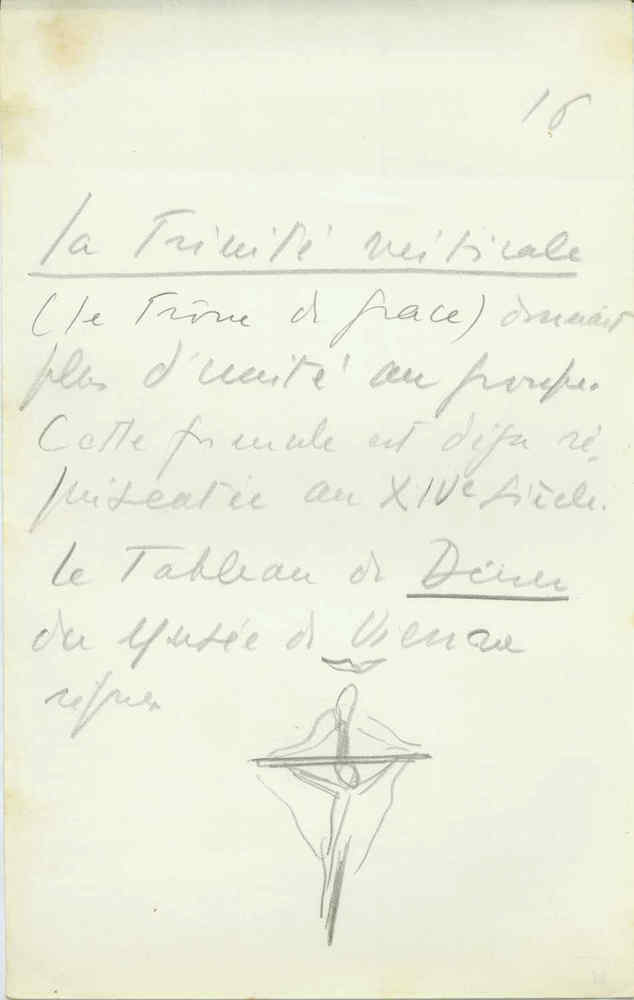 16
La Trinité verticale
(le Trône de grace) donnait
plus d'unité au groupe.
Cette formule est déja re-
présentée au XIVe siècle.
le Tableau de Dürer
du Musée de Vienne